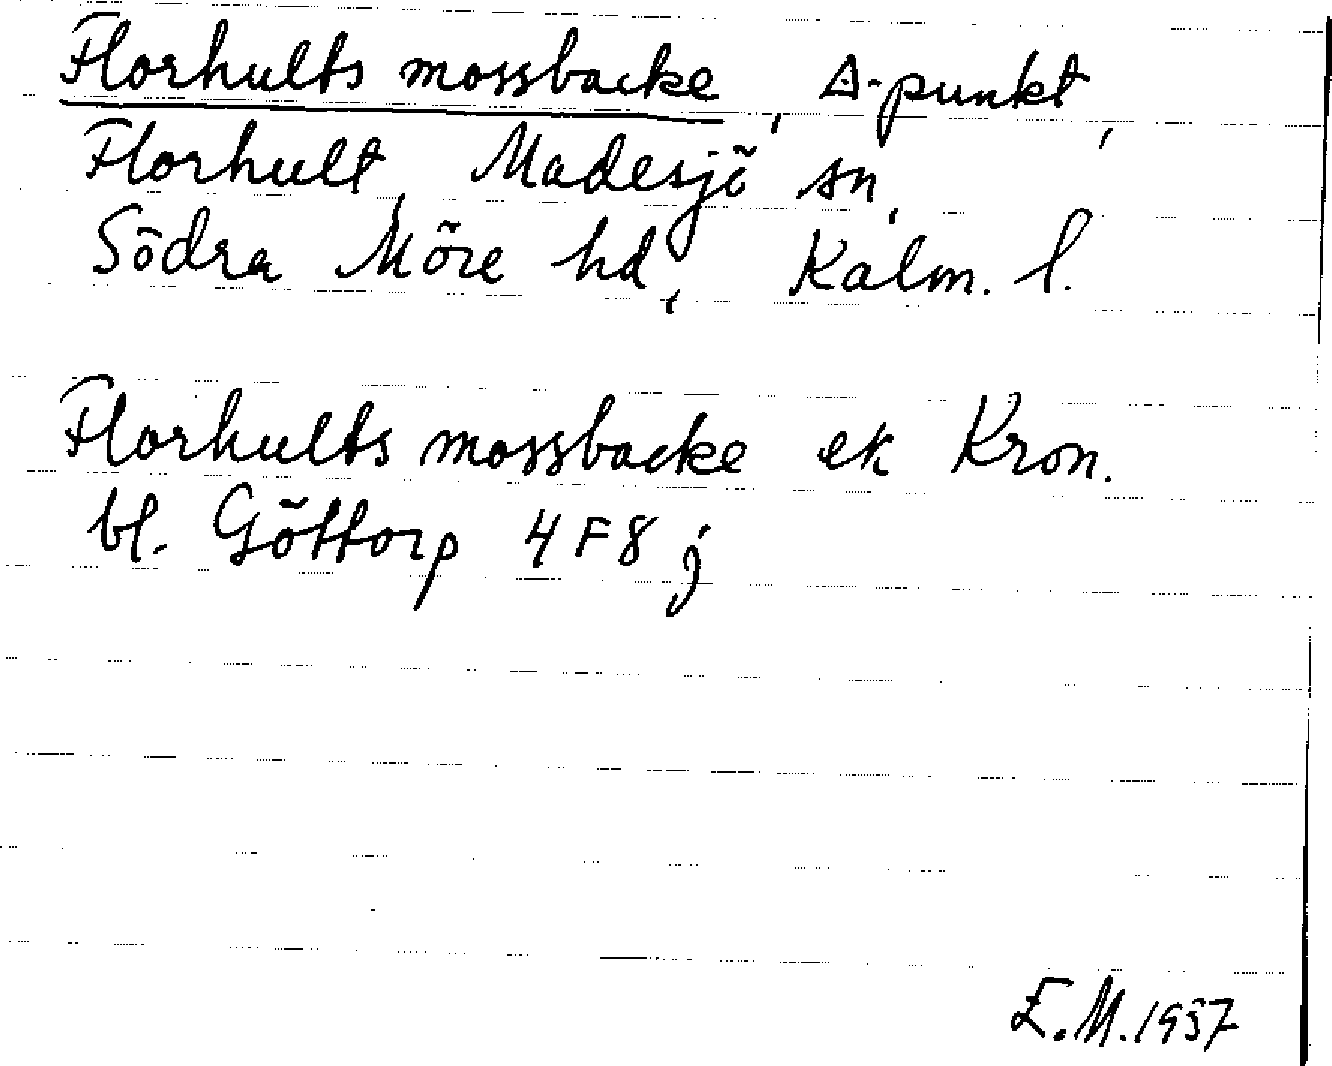 Florhults mossbacke, ∆-punkt,
Florhult, Madesjö sn,
Södra Möre hd, Kalm. l.
Florhults mossbacke ek Kron.
bl. Göttorp 4F8j
E.M. 1957